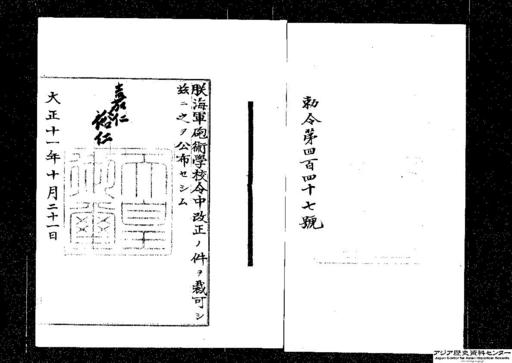 勅令第四百四十七號
朕海軍砲術學校令中改正ノ件ヲ裁可シ
玆ニ之ヲ公布セシム
嘉仁
裕仁
天皇御璽
大正十一年十月二十一日
アジア歴史資料センター
Japan Center for Asian Historical Records